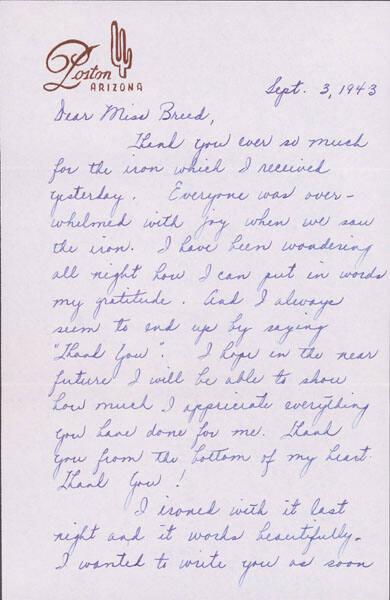 Poston
ARIZONA
Sept. 3, 1943
Dear Miss Breed,
Thank you ever so much
for the iron which I received
yesterday. Everyone was over-
whelmed with joy when we saw
the iron. I have been wondering
all night how I can put in words
my gratitude. And I always
seem to end up by saying
"Thank You". I hope in the near
future I will be able to show
how much I appreciate everything
you have done for me. Thank
you from the bottom of my heart.
Thank You!
I ironed with it last
night and it works beautifully.
I wanted to write you as soon